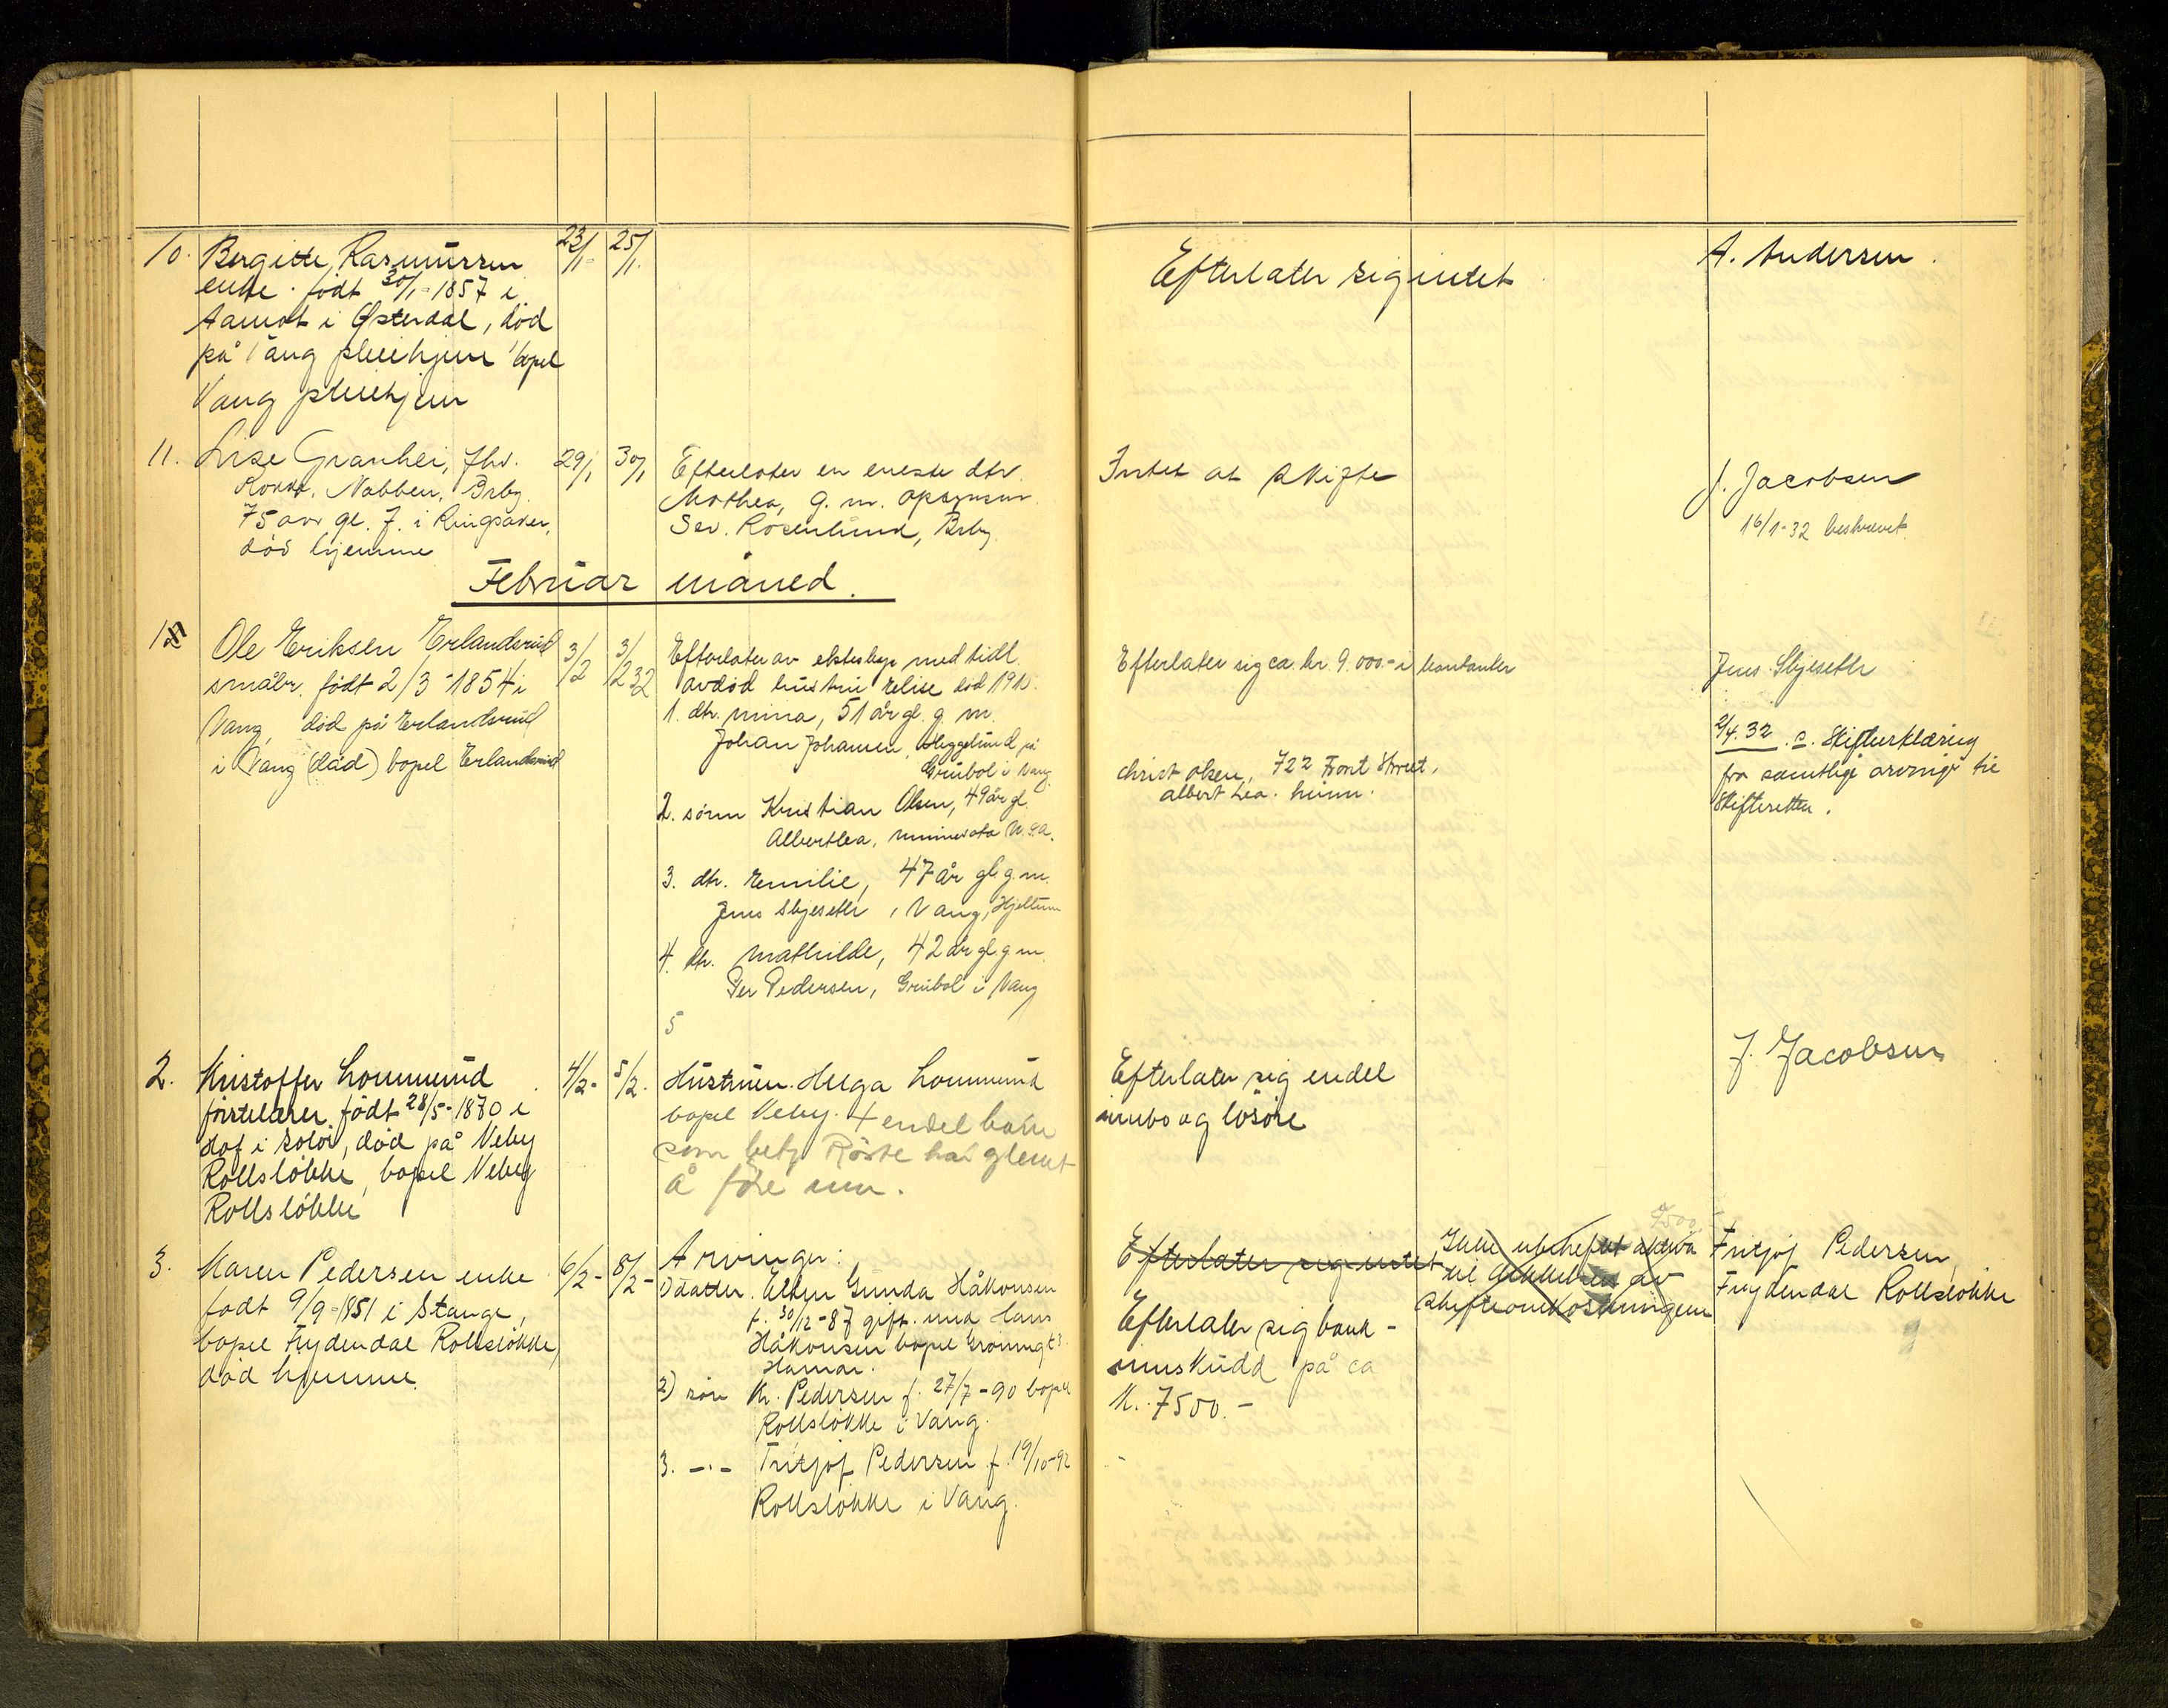 10. Bergitte Rasmussen 23/1- 25/1.
enke. født 30/1-1857 i
Aamot i Østerdal, død
på Vang pleiehjem bopel
Vang pleiehjem
Efterlater sig intet
A. Andersen.
11. Lise Granhei, fhv. 29/1 30/1
Nabben, Brby.
75 avr gl. f. i Ringsaker,
død hjemme
Efterlater en eneste dtr.
Mathea, g. m. opsynsm.
Sev. Rosenlund, Brby.
Intet at skifte
J. Jacobsen
16/1-32 beskrevet.
Februar måned.
1 Ole Eriksen Erlandsrud 3/2 3/2 32
småbr. født 2/3-1854 i
Vang, død på Erlandsrud
i Vang (død) bopel Erlandsrud
Efterlater av ekteskap med tidl.
avdød hustru Elise død 1910.
1. dtr. Mina, 51 år gl. g. m.
Johan Johansen, Heggelund på
Grubol i Vang
2. sønn Kristian Olsen, 49 år gl.
Albertlea, Minnesota U.S.A.
3. dtr. Emilie, 47 år gl. g. m.
Jens Skjeseth, Vang, Hjellum
4. dtr. Mathilde, 42 år gl. g. m.
Per Pedersen, Grubol i Vang
5
Efterlater sig ca. kr. 9.000.- i kontanter
Christ Olsen, 722 Front Street,
Albert Lea. Minn.
Jens Skjeseth
2/4.32. s. Skifteerklæring
fra samtlige arvinger til
Skifteretten.
2. Kristoffer Lommerud 4/2- 5/2.
førstelærer, født 28/5-1870 i
Hof i Solør, død på Veby
Rollsløkke, bopel Veby
Rollsløkke
Hustruen. Helga Lommerud
bopel Veby. + endel barn
som betj. Røste har glemt
å føre inn.
Efterlater sig endel
innbo og løsøre
J. Jacobsen
3. Karen Pedersen enke 6/2- 8/2-
født 9/9-1851 i Stange,
bopel Frydendal Rollsløkke,
død hjemme.
Arvinger:
1) datter. Gunda Håkonsen
f. 30/12-87 gift. med Hans
Håkonsen bopel Grønnegt.
Hamar.
2) søn Kr. Pedersen f. 27/7-90 bopel
Rollsløkke i Vang.
3. -"- Fritjof Pedersen f. 19/10-92
Rollsløkke i Vang.
Efterlater sig intet
Efterlater sig bank-
innskudd på ca
kr. 7500.-
7500
Ikke ubeheftet aktiva
til dekkelsen av
skifteomkostningene
Fritjof Pedersen,
Frydendal Rollsløkke